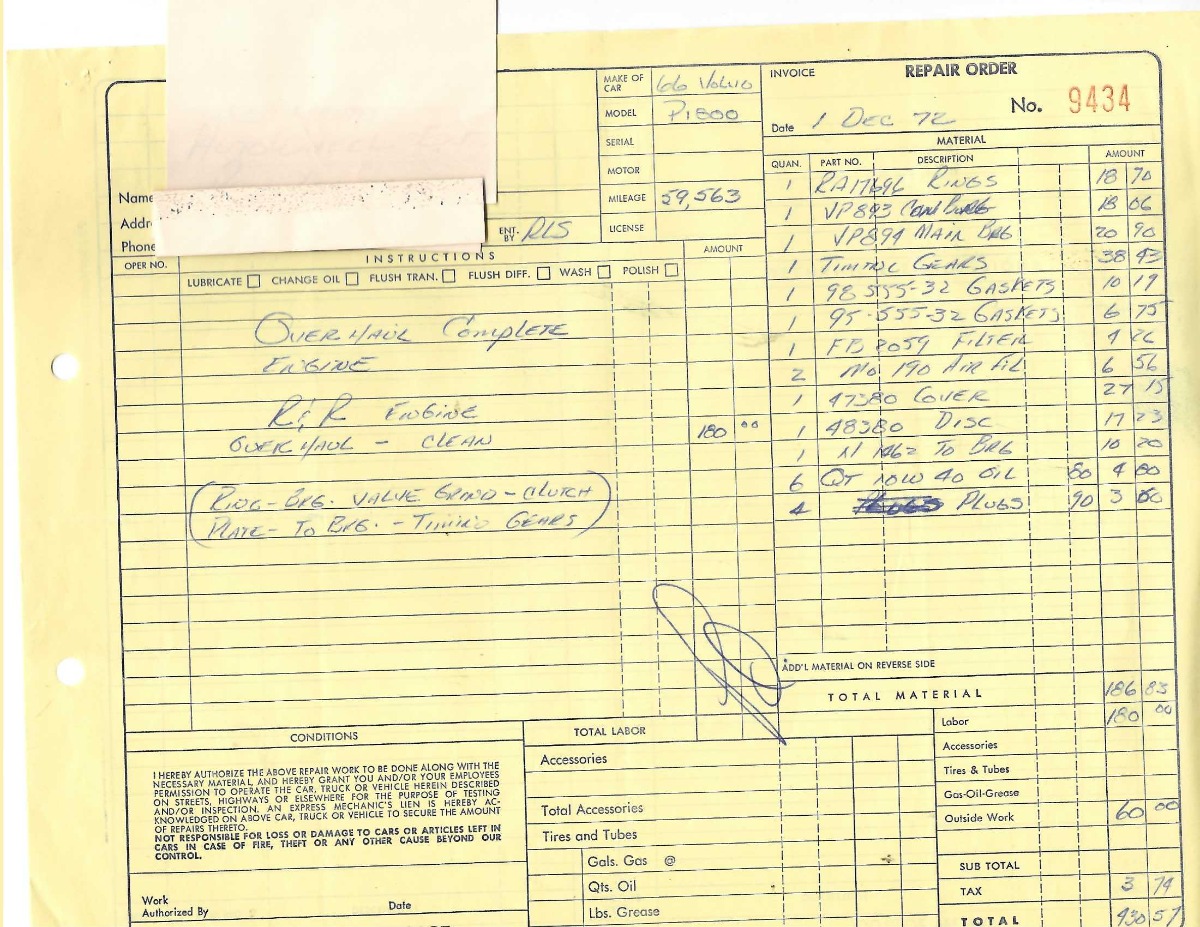 MAKE OF CAR 66 Volvo
MODEL P1800
SERIAL
MOTOR
MILEAGE 59,563
LICENSE
Name
Addr
Phone
ENT. BY RLS
INVOICE REPAIR ORDER
No. 9434
Date 1 DEC 72
MATERIAL
QUAN. PART NO. DESCRIPTION AMOUNT
1 RA17696 RINGS 18 70
1 VP893 18 06
1 VP894 MAIN BRG 20 90
1 TIMING GEARS 38 43
1 98 555-32 GASKETS 10 19
1 95-555-32 GASKETS 6 75
1 FB 8059 FILTER 4 26
2 Mo 190 AIR FIL 6 56
1 47380 COVER 27 15
1 48380 DISC 17 23
1 TO BRG 10 20
6 QT 10W 40 OIL 80 4 80
4 PLUGS 90 3 60
ADD'L MATERIAL ON REVERSE SIDE
TOTAL MATERIAL 186 83
OPER NO. INSTRUCTIONS AMOUNT
LUBRICATE CHANGE OIL FLUSH TRAN. FLUSH DIFF. WASH POLISH
OVERHAUL COMPLETE
ENGINE
R&R ENGINE
OVERHAUL - CLEAN 180 00
(RING-BRG. VALVE GRIND-CLUTCH
PLATE-TO BRG.-TIMING GEARS)
CONDITIONS
I HEREBY AUTHORIZE THE ABOVE REPAIR WORK TO BE DONE ALONG WITH THE
NECESSARY MATERIAL, AND HEREBY GRANT YOU AND/OR YOUR EMPLOYEES
PERMISSION TO OPERATE THE CAR, TRUCK OR VEHICLE HEREIN DESCRIBED
ON STREETS, HIGHWAYS OR ELSEWHERE FOR THE PURPOSE OF TESTING
AND/OR INSPECTION. AN EXPRESS MECHANIC'S LIEN IS HEREBY AC-
KNOWLEDGED ON ABOVE CAR, TRUCK OR VEHICLE TO SECURE THE AMOUNT
OF REPAIRS THERETO.
NOT RESPONSIBLE FOR LOSS OR DAMAGE TO CARS OR ARTICLES LEFT IN
CARS IN CASE OF FIRE, THEFT OR ANY OTHER CAUSE BEYOND OUR
CONTROL.
Work
Authorized By Date
TOTAL LABOR
Accessories
Total Accessories
Tires and Tubes
Gals. Gas @
Qts. Oil
Lbs. Grease
Labor 180 00
Accessories
Tires & Tubes
Gas-Oil-Grease
Outside Work 60 00
SUB TOTAL
TAX 3 74
TOTAL 430 57